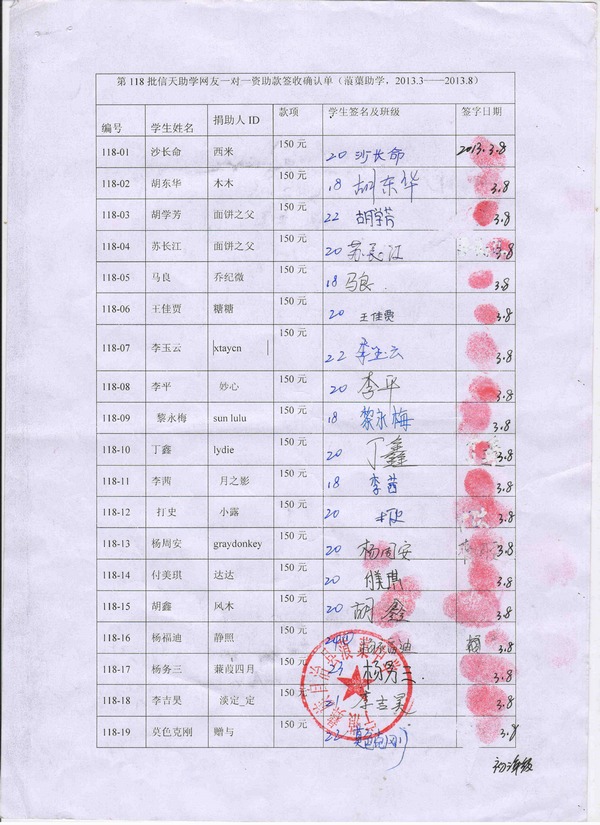 第 118 批信天助学网友一对一资助款签收确认单（蒗蕖助学，2013.3——2013.8）
编号 学生姓名 捐助人 ID 款项 学生签名及班级 签字日期
118-01 沙长命 西米 150 元 20 沙长命 2013.3.8
118-02 胡东华 木木 150 元 18 胡东华 3.8
118-03 胡学芳 面饼之父 150 元 22 胡学芳 3.8
118-04 苏长江 面饼之父 150 元 20 苏长江 3.8
118-05 马良 乔纪微 150 元 18 马良. 3.8
118-06 王佳贾 糖糖 150 元 20 王佳贾 3.8
118-07 李玉云 xtaycn 150 元 22 李玉云 3.8
118-08 李平 妙心 150 元 20 李平 3.8
118-09 黎永梅 sun lulu 150 元 18 黎永梅 3.8
118-10 丁鑫 lydie 150 元 20 丁鑫 3.8
118-11 李茜 月之影 150 元 18 李茜 3.8
118-12 打史 小露 150 元 20 打史 3.8
118-13 杨周安 graydonkey 150 元 20 杨周安 3.8
118-14 付美琪 达达 150 元 20 3.8
118-15 胡鑫 风木 150 元 20 胡鑫 3.8
118-16 杨福迪 静照 150 元 杨福迪 3.8
118-17 杨务三 蒹葭四月 150 元 23 杨务三. 3.8
118-18 李吉昊 淡定_定 150 元 21 李吉昊 3.8
118-19 莫色克刚 赠与 150 元 22 莫色克刚 3.8